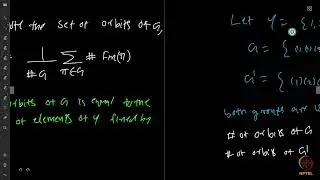 note the set of orbits of G,
= 1/#G Σ π∈G # Fm(π)
orbits of G is equal to the
of elements of Y fixed by
Let Y = {1,
G = {(1)(
G' = {(1)(2)(
both groups are is
# of orbits of G
# of orbits of G'
NPTEL